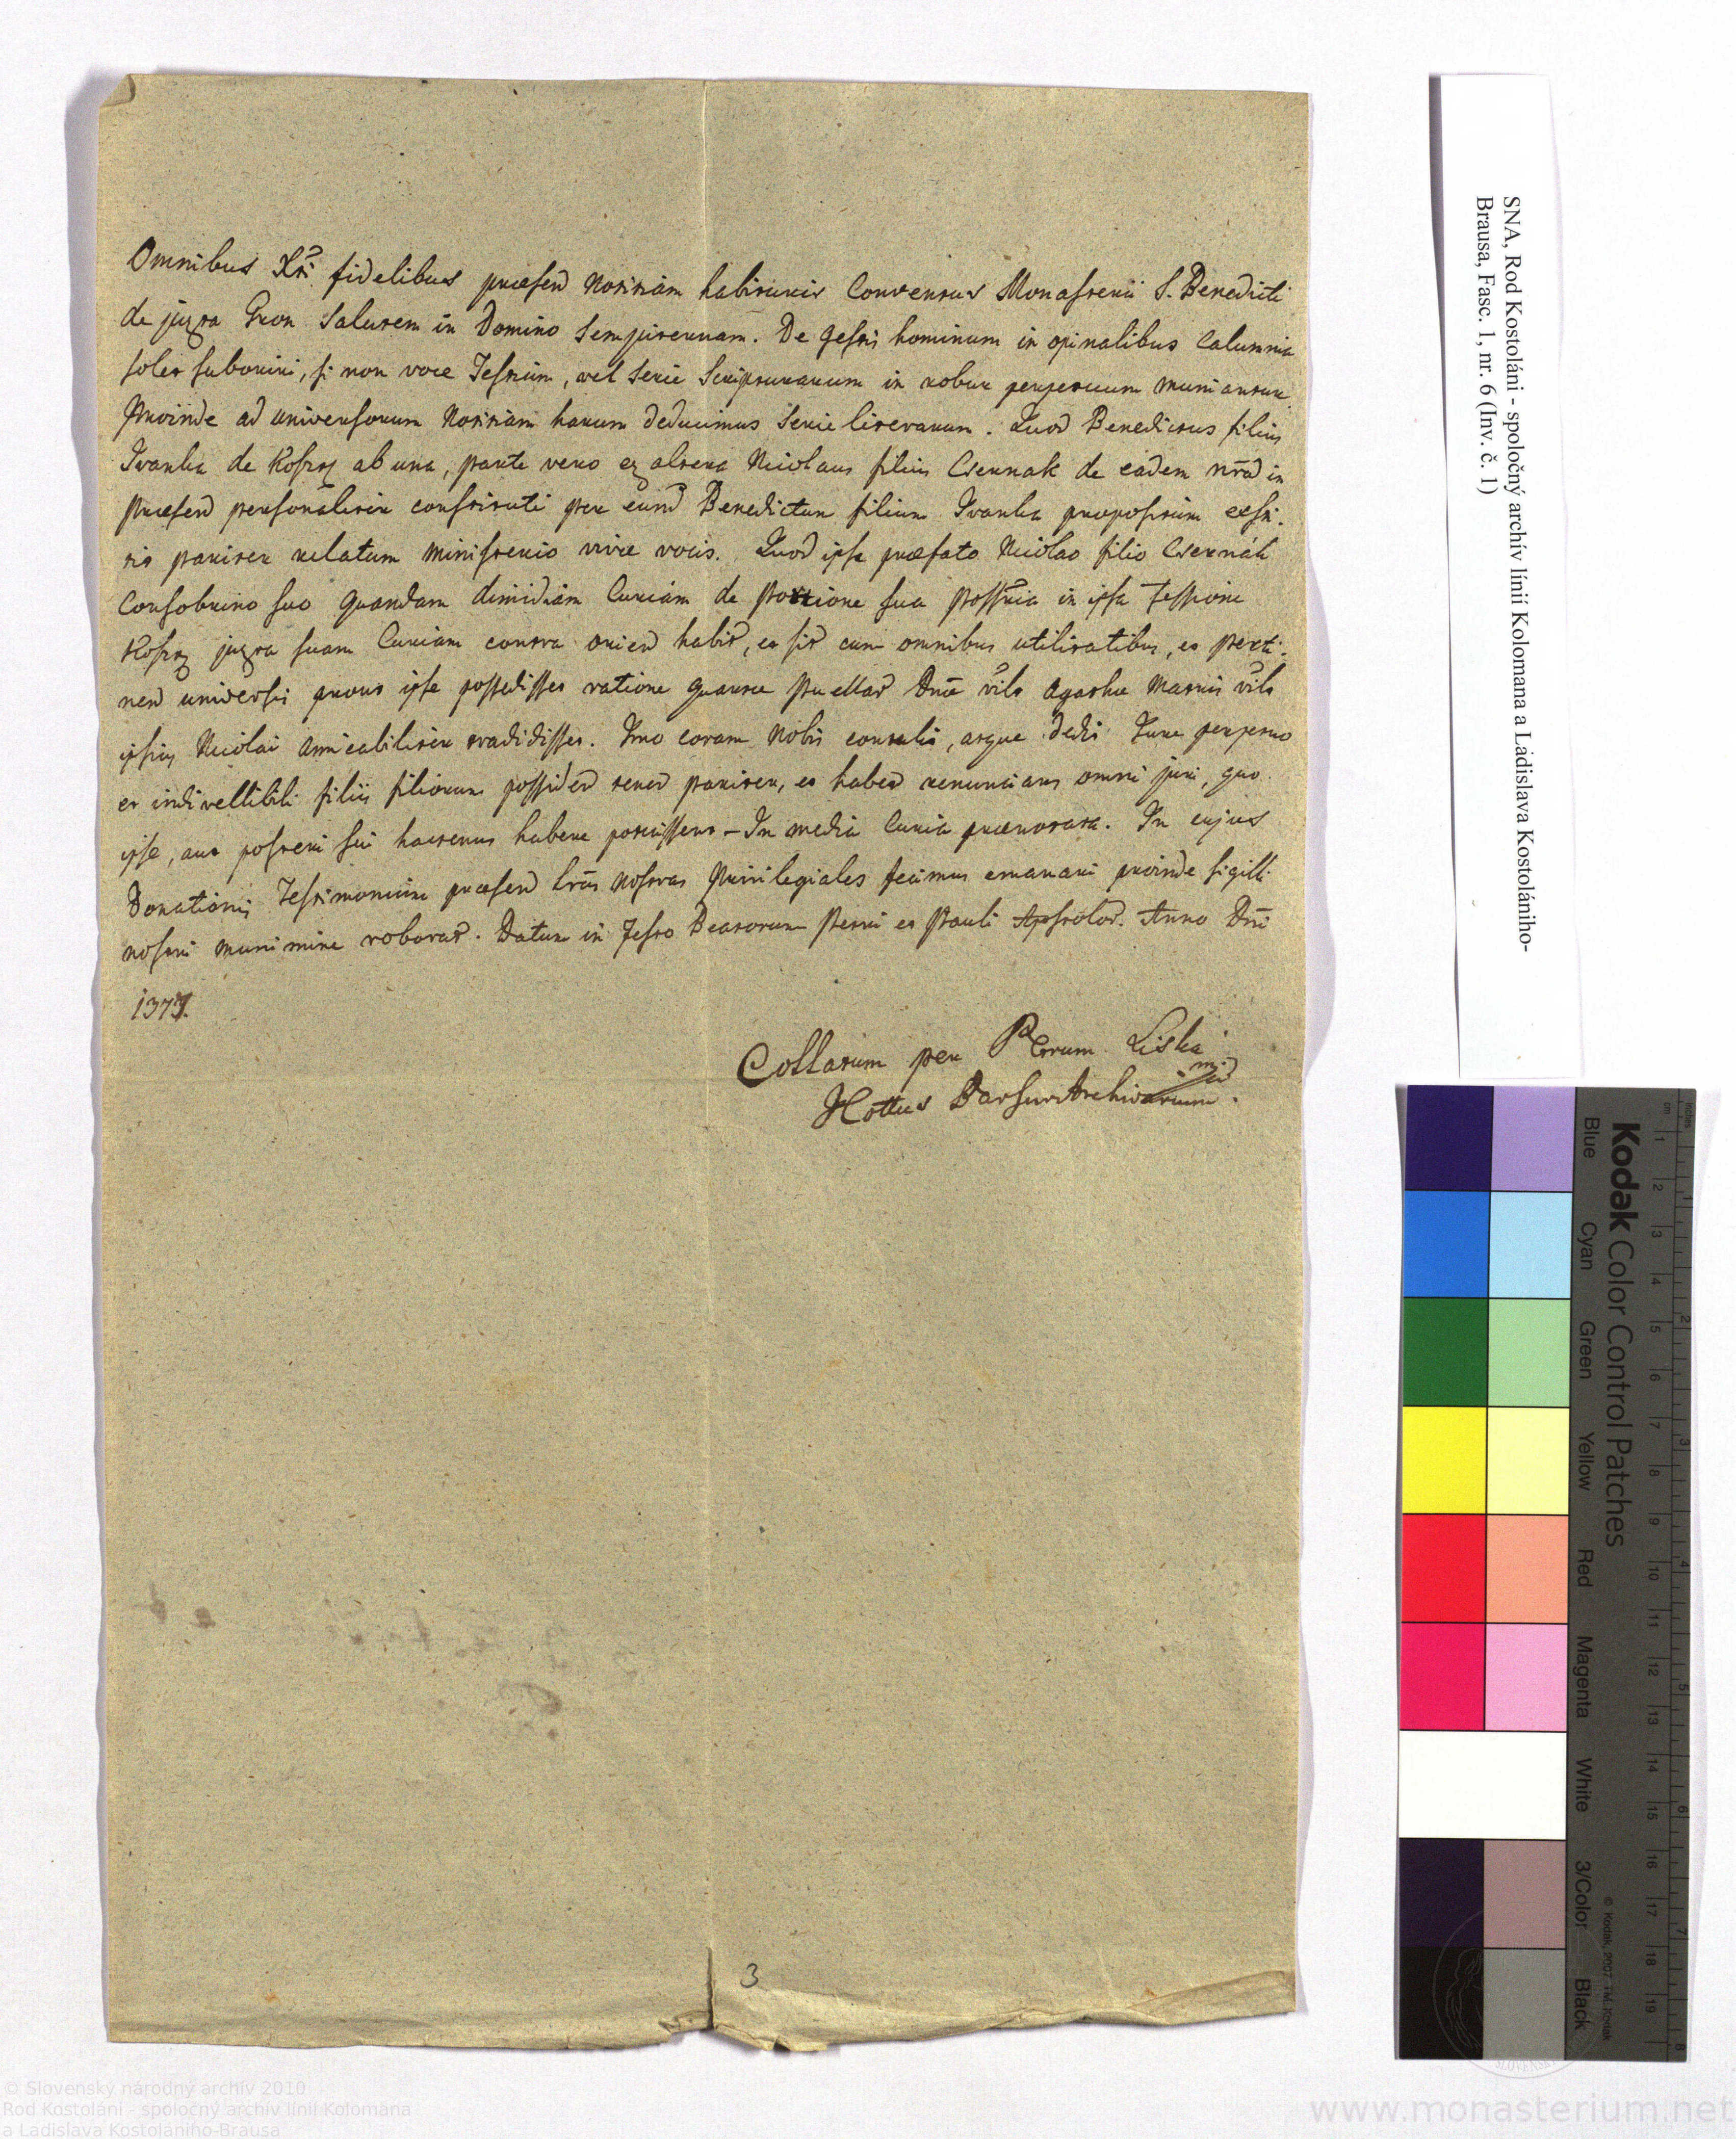 Omnibus Xti fidelibus præsend Notitiam habituris Conventus Monasterii S. Benedicti
de juxta Gron Salutem in Domino Sempiternam. De gestis hominum in opinalibus Calumnia
solet suboriri, si non voce Testium, vel Serie Scripturarum in robur perpetuum muniantur.
Proinde ad universorum Notitiam harum deducimus Serie literarum. Quod Benedictus filius
Ivanka de Koszt ab una, parte vero ex altera Nicolaus filius Csernak de eadem nrad in
præsend personaliter constituti per eund Benedictum filium Ivanka propositum exsti-
tit pariter relatum ministerio vivæ vocis. Quod ipse præfato Nicolao filio Csernák
Consobrino suo quandam dimidiam Curiam de portione sua possria in ipsa
juxta suam Curiam contra orien habit, et sit cum omnibus utilitatibus, et perti-
nen universis prout ipse possedisset ratione quartæ puellar Dnæ Agathæ Matris
ipsius Nicolai amicabiliter tradidisset. Imo coram Nobis contulit, atque dedit Jure perpetuo
et indivellibili filiis filiorum possided tened pariter, et habed renuncians omni juri, quo
ipse, aut posteri sui hactenus habere potuissent – In media Curia prænotata. In cujus
Donationis Testimonium præsend lras nostras Privilegiales fecimus emanari proinde sigilli
nostri munimine roborad. Datum in festo Beatorum Petri et Pauli Apstolor. Anno Dni
1377.
Collatum per Petrum Liska
Cottus Barsien Archivarium. mp
3
SNA, Rod Kostoláni - spoločný archív línií Kolomana a Ladislava Kostolániho-
Brausa, Fasc. 1, nr. 6 (Inv. č. 1)
Kodak Color Control Patches
Blue Cyan Green Yellow Red Magenta White 3/Color Black
inches 1 2 3 4 5 6 7 8
cm 1 2 3 4 5 6 7 8 9 10 11 12 13 14 15 16 17 18 19
© Kodak, 2007 TM: Kodak
© Slovenský národný archív 2010
Rod Kostoláni - spoločný archív línií Kolomana
a Ladislava Kostolániho-Brausa
www.monasterium.net